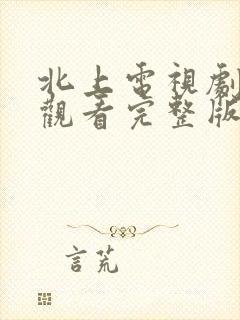 北上電視劇
觀看完整版
言荒